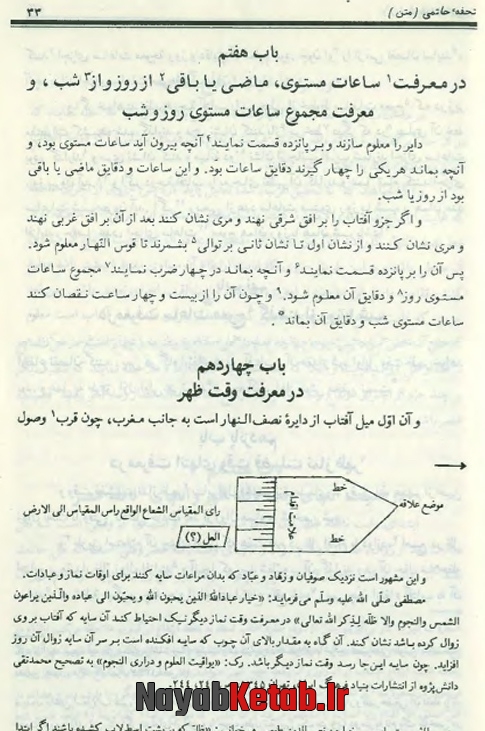 تحفهٔ حاتمی (متن)
۳۳
باب هفتم
در معرفت۱ ساعات مستوی، ماضی یا باقی۲ از روز و از۳ شب ، و
معرفت مجموع ساعات مستوی روز و شب
دایر را معلوم سازند و بر پانزده قسمت نمایند۴ آنچه بیرون آید ساعات مستوی بود، و
آنچه بماند هر یکی را چهار گیرند دقایق ساعات بود. و این ساعات و دقایق ماضی یا باقی
بود از روز یا شب.
و اگر جزو آفتاب را بر افق شرقی نهند و مری نشان کنند بعد از آن بر افق غربی نهند
و مری نشان کنند و از نشان اول تا نشان ثانی بر توالی۵ بشمرند تا قوس النّهار معلوم شود.
پس آن را بر پانزده قسمت نمایند۶ و آنچه بماند در چهار ضرب نمایند۷ مجموع ساعات
مستوی روز۸ و دقایق آن معلوم شود.۹ و چون آن را از بیست و چهار ساعت نقصان کنند
ساعات مستوی شب و دقایق آن بماند.
باب چهاردهم
در معرفت وقت ظهر
و آن اوّل میل آفتاب از دایرهٔ نصف النهار است به جانب مغرب، چون قرب۱ وصول
خط
علامت اقدام
خط
موضع علاقه
رأی المقیاس الشعاع الواقع راس المقیاس الی الارض
العل (؟)
و این مشهور است نزدیک صوفیان و زهّاد و عبّاد که بدان مراعات سایه کنند برای اوقات نماز و عبادات.
مصطفی صلّی الله علیه وسلّم می‌فرماید: «خیار عبادالله الذین یحبون الله و یحبّون الی عباده والّذین یراعون
الشمس والنجوم والا ظلّه لِذِکر الله تعالی» در معرفت وقت نماز دیگر نیک احتیاط کند آن سایه که آفتاب بر وی
زوال کرده باشد نشان کند. آن گاه به مقدار بالای آن چوب که سایه افکنده است بر سر آن سایه زوال آن روز
افزاید. چون سایه این‌جا رسد وقت نماز دیگر باشد. رک: «یواقیت العلوم و دراری النجوم» به تصحیح محمدتقی
دانش‌پژوه از انتشارات بنیاد فرهنگ
NayabKetab.Ir